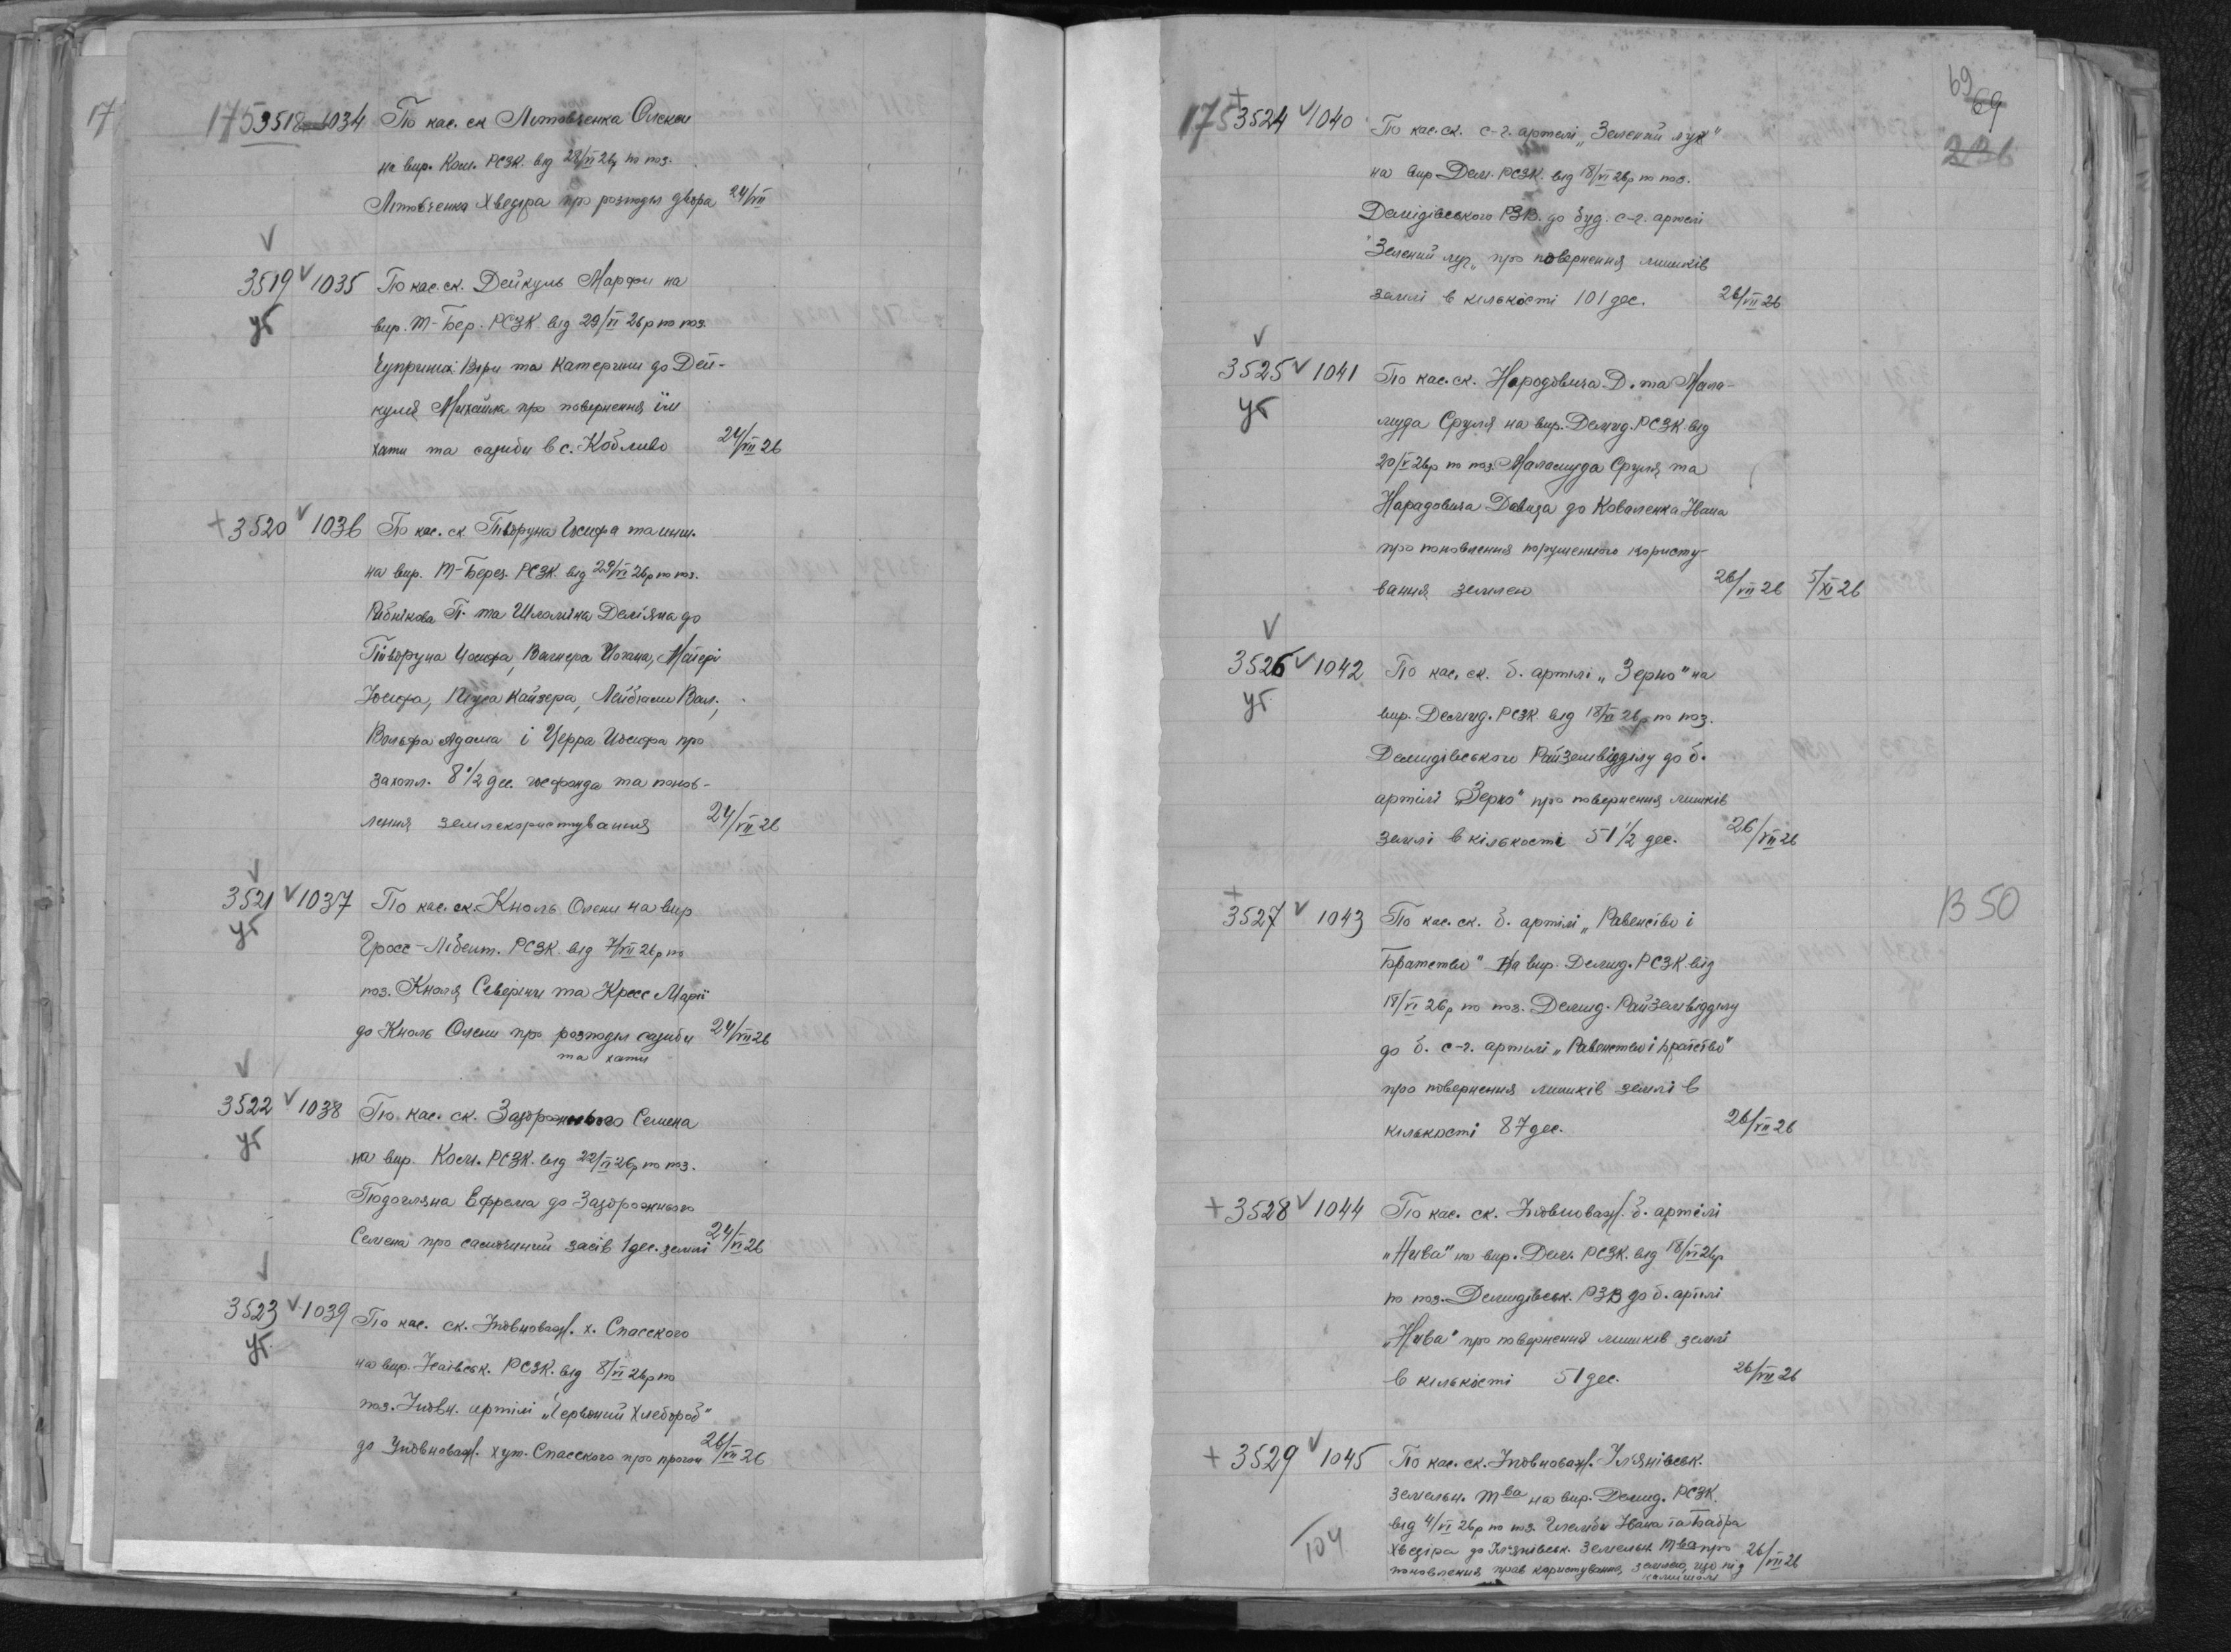 17
175 3518 1034 По кас. ск Литовченка Олекси
на вир. Ком. РСЗК. від 28/VI 26р по поз.
Литовченка Хведіра про розподіл двора 24/VII
3519 V 1035 По кас. ск. Дейкуль Марфи на
уг
вир. Т-Бер. РСЗК від 29/VI 26р по поз.
Чуприних Віри та Катерини до Дей-
куля Михайла про повернення їм
хати та садиби в с. Коблево 24/VII 26
+ 3520 V 1036 По кас. ск Півторуна Йосифа та инш.
на вир. Т-Берез. РСЗК від 29/VI 26р по поз.
Рибнікова П. та Шломіна Дем'яна до
Йосифа, Вагнера Йогана, Майєрі
Йосифа, Кайзера, Вал.,
Вольфа Адама і Церра Йосифа про
захопл. 8 1/2 дес. госфонда та понов-
лення землекористування 24/VII 26
3521 V 1037 По кас. ск. Кноль Олени на вир
уг
Гросс-Лібент. РСЗК від 7/VII 26р по
поз. Кноля Северіни та Кресс Марії
до Кноль Олени про розподіл садиби 24/VII 26
та хати
3522 V 1038 По кас. ск. Запорожнього Семена
уг
на вир. Ком. РСЗК. від 22/VI 26р по поз.
Подогляна Ефрема до Запорожнього
Семена про самочинний засів 1 дес. землі 24/VI 26
3523 V 1039 По кас. ск. Уповноваж. х. Спасского
уг
на вир. Ісаївськ. РСЗК. від 8/VI 26р по
поз. Уповн. артілі „Червоний Хлебороб"
до Уповноваж. хут. Спасского про прогон 26/VII 26
69
69
226
175 + 3524 V 1040 По кас. ск. с-г. артелі „Зелений луг"
на вир Дем. РСЗК. від 18/VI 26р по поз.
Демідівського РЗВ. до буд. с-г. артелі
"Зелений луг„ про повернення лишків
землі в кількості 101 дес. 26/VII 26
3525 V 1041 По кас. ск. Народовича Д. та Мала-
уг
муда Сруля на вир. Демид. РСЗК від
20/V 26р по поз. Маламуда Сруля та
Народовича Давида до Коваленка Івана
про поновлення порушенного користу-
вання землею 26/VII 26 5/XI 26
3526 V 1042 По кас. ск. б. артілі „Зерно" на
уг.
вир. Демид. РСЗК від 18/VI 26р по поз.
Демидівського Райземвідділу до б.
артілі „Зерно" про повернення лишків
землі в кількості 51 1/2 дес. 26/VII 26
+
3527 V 1043 По кас. ск. б. артілі „Равенство і
В 50
Братство" На вир. Демид. РСЗК від
18/VI 26р по поз. Демид. Райземвідділу
до б. с-г. артілі „Равенство і Братство"
про повернення лишків землі в
кількості 87 дес. 26/VII 26
+ 3528 V 1044 По кас. ск. Уповноваж. б. артілі
„Нива" на вир. Дем. РСЗК. від 18/VI 26р
по поз. Демидівськ. РЗВ до б. артілі
„Нива" про повернення лишків землі
в кількості 51 дес. 26/VII 26
+ 3529 V 1045 По кас. ск. Уповноваж. Ул'янівськ.
земельн. Тва на вир. Демид. РСЗК.
від 4/VI 26р по поз. Івана та Бабра
104
Хведіра до Ул'янівськ. земельн. Тва про 26/VII 26
поновлення прав користування землею, що під
камишом